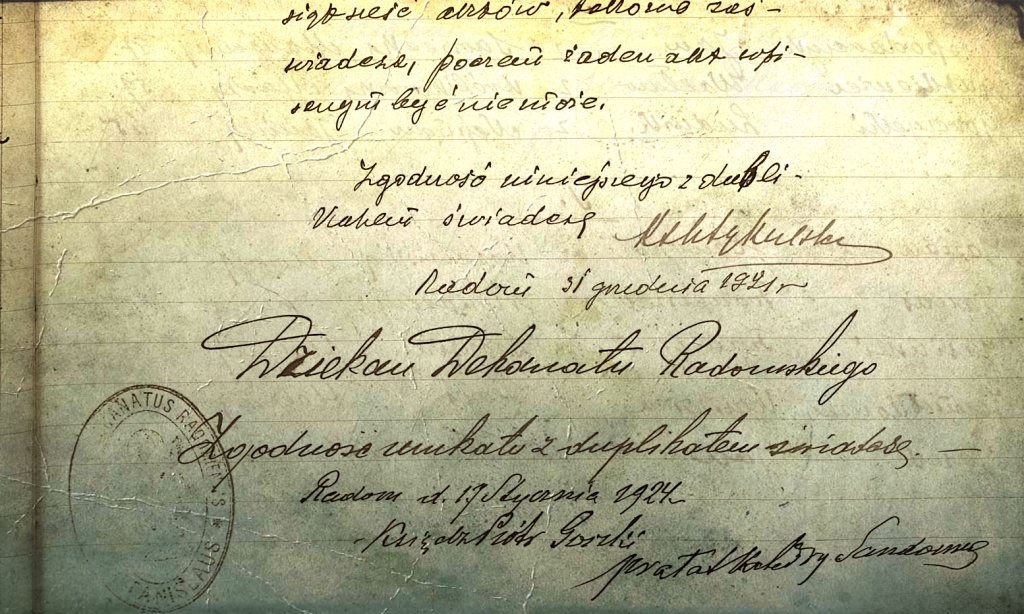 sięć aktów, zaś-
wiadczę, poczem żaden akt wpi-
sanym być nie może.
Zgodność niniejszego z dubli-
katem świadczę
Radom 31 grudnia 1921 r
Dziekan Dekanatu Radomskiego
Zgodność unikatu z duplikatem świadczę. —
Radom d. 17 Stycznia 1924
Ksiądz Piotr Gorski
prałat Katedry Sandom
DECANATUS RADOMENSIS * STANISLAUS